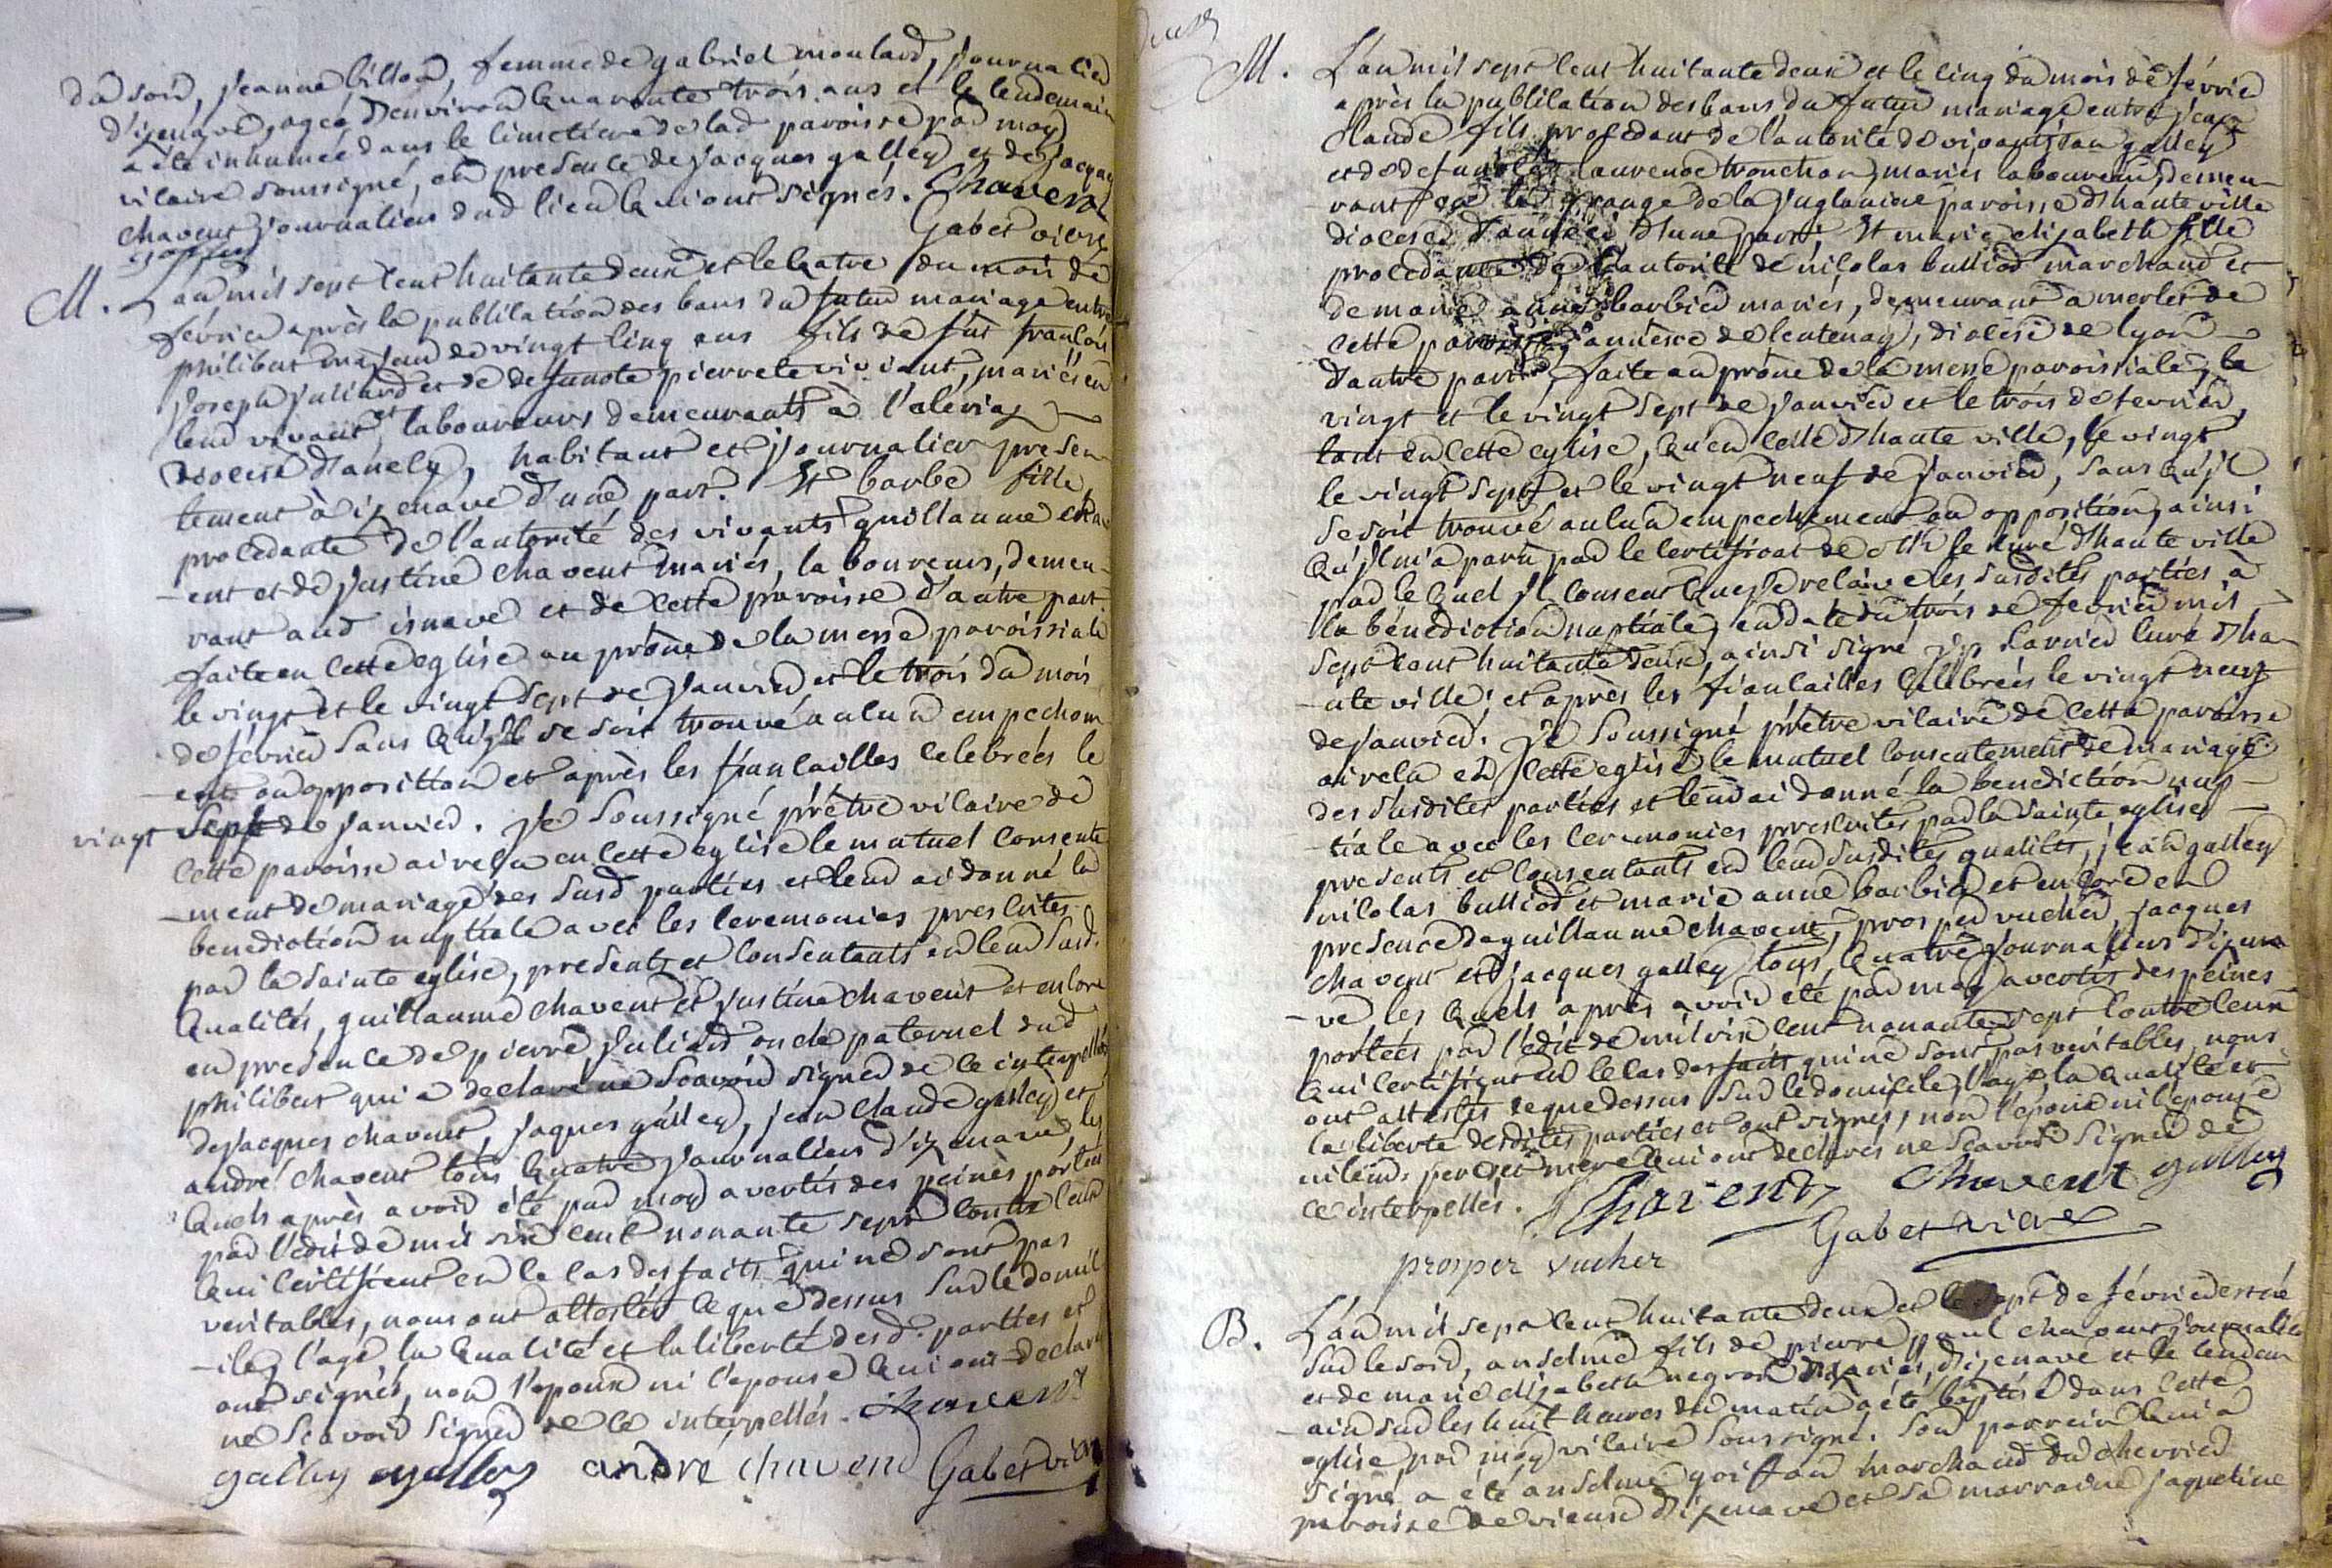 du soir, jeanne billon, femme de gabriel moulard, journalier
d'izenave, agée d'environ quarante trois ans et le lendemain
a été inhumée dans le cimetiere de lad paroisse par moy
vicaire soussigné, en presence de jacques galley et de jacques
chavent journaliers dud lieu qui ont signés. Chavent
galley Gabet vicre
M. L'an mil sept cent huitante deux et le quatre du mois de
février après la publication des bans du futur mariage entre
philibert majeur de vingt cinq ans fils de fut françois
joseph juliard et de defuncte pierrete viviant, mariés en
leur vivant et laboureurs demeurants à l'aleviaz
diocese d'anecy, habitant et journalier presen-
tement à izenave d'une part. Et barbe fille
procedante de l'autorité des vivants guillaume chav
ent et de justine chavent mariés, laboureurs, demeu-
rant aud isnave et de cette paroisse d'autre part
faite en cette eglise au prône de la messe paroissiale
le vingt et le vingt sept de janvier et le trois du mois
de février sans qu'il se soit trouvé aucun empechem-
ent ou opposition et après les fiancailles celebrées le
vingt sept de janvier. Je soussigné prêtre vicaire de
cette paroisse ai reçu en cette eglise le mutuel consente
-ment de mariage des susd parties et leur ai donné la
benediction nuptiale avec les ceremonies prescrites
par la sainte eglise, presents et consentants en leur susd.
qualités, guillaume chavent et justine chavent et encore
en presence de pierre juliard oncle paternel dud
philibert qui a declaré ne scavoir signer de ce interpellé
de jacques chavent, jaques galley, jean claude galley et
andré chavent tous quatre journaliers d'izenave, les
quels après avoir été par moy avertis des peines portées
par l'édit de mil six cent nonante sept contre ceux
qui certifient en le cas des faits qui ne sont pas
veritables, nous ont attestés ce que dessus sur le domic
-ile, l'age, la qualité et la liberté des d. parties et
ont signés, non l'epoux ni l'epouse qui ont declaré
ne scavoir signer de ce interpellés. chavent
galley galley andré chavend Gabet vicre
M. L'an mil sept cent huitante deux et le cinq du mois de février
après la publication des bans du futur mariage entre jean
claude fils procedant de l'autorité de vivant jean galley
et de defuncte laurence tronchon, mariés laboureurs, demeu-
rant sur la grange de la juglaniere paroisse d'haute ville
diocese d'anneci d'une part; Et marie elizabeth fille
procedante de l'autorité de nicolas bulliod marchand et
de marie anne barbier mariés, demeurant à merlet de
cette paroisse, annèxe de lentenay, diocèse de lyon
d'autre part, faite au prône de la messe paroissiale, le
vingt et le vingt sept de janvier et le trois de fevrier,
tant en cette eglise, qu'en celle d'haute ville, le vingt
le vingt sept et le vingt neuf de janvier, sans qu'il
se soit trouvé aulcun empechement ou opposition, ainsi
qu'il m'a paru par le certificat de mr le curé d'haute ville
par lequel il consent que je reçoive les susdites parties à
la bénédiction nuptiale, en date du trois de fevrier mil
sept cent huitante deux, ainsi signé curé d'ha
-ute ville; et après les fiancailles celebrées le vingt neuf
de janvier. Je soussigné prêtre vicaire de cette paroisse
ai reçu en cette eglise le mutuel consentement de mariage
des susdites parties et leur ai donné la benediction nup-
-tiale avec les ceremonies prescrites par la sainte eglise
presents et consentants en leur susdites qualités, jean galley
nicolas bulliod et marie anne barbier et encore en
presence de guillaume chavent, prosper vucher, jacques
chavent et jacques galley tous quatre journaliers d'izena
-ve les quels après avoir été par moy avertis des peines
portées par l'édit de mil six cent nonante sept contre ceux
qui certifient en le cas des faits qui ne sont pas véritables, nous
ont attestés ce que dessus sur le domicile, l'age, la qualité et
la liberté desdites parties et ont signés, non l'epoux ni l'epouse
ni leurs pere et mere qui ont declarés ne scavoir signer de
ce interpellés. Chavent chavent galley
prosper vucher Gabet vicre
B. L'an mil sept cent huitante deux et le sept de février est né
sur le soir, anselme fils de pierre paul chavent journalier
et de marie elizabeth negron mariés, d'izenave et le lendem
-ain sur les huit heures du matin a été baptisé dans cette
eglise, par moy vicaire soussigné. Son parrein qui a
signé a été anselme goiffon marchand du chevrier
paroisse de vieux d'izenave et sa marraine jaqueline